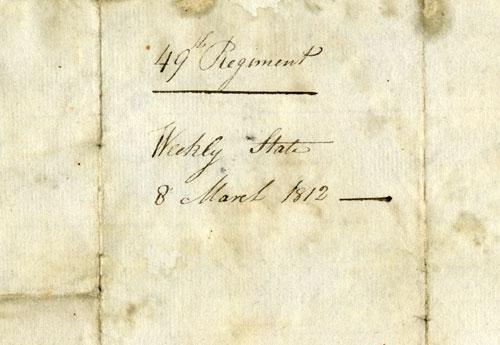 49th Regiment
Weekly State
8 March 1812 —